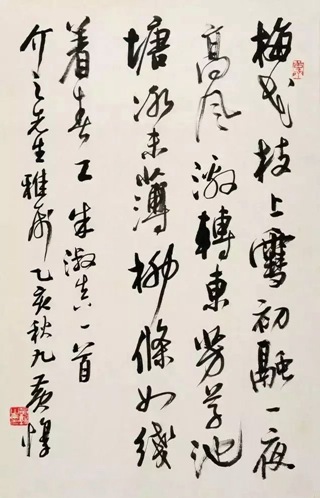 梅花枝上雪初融一夜
高风激轉東芳草池
塘冰未薄柳條如綫
着春工 朱淑真一首
介之先生雅属 乙亥秋九 黄惇